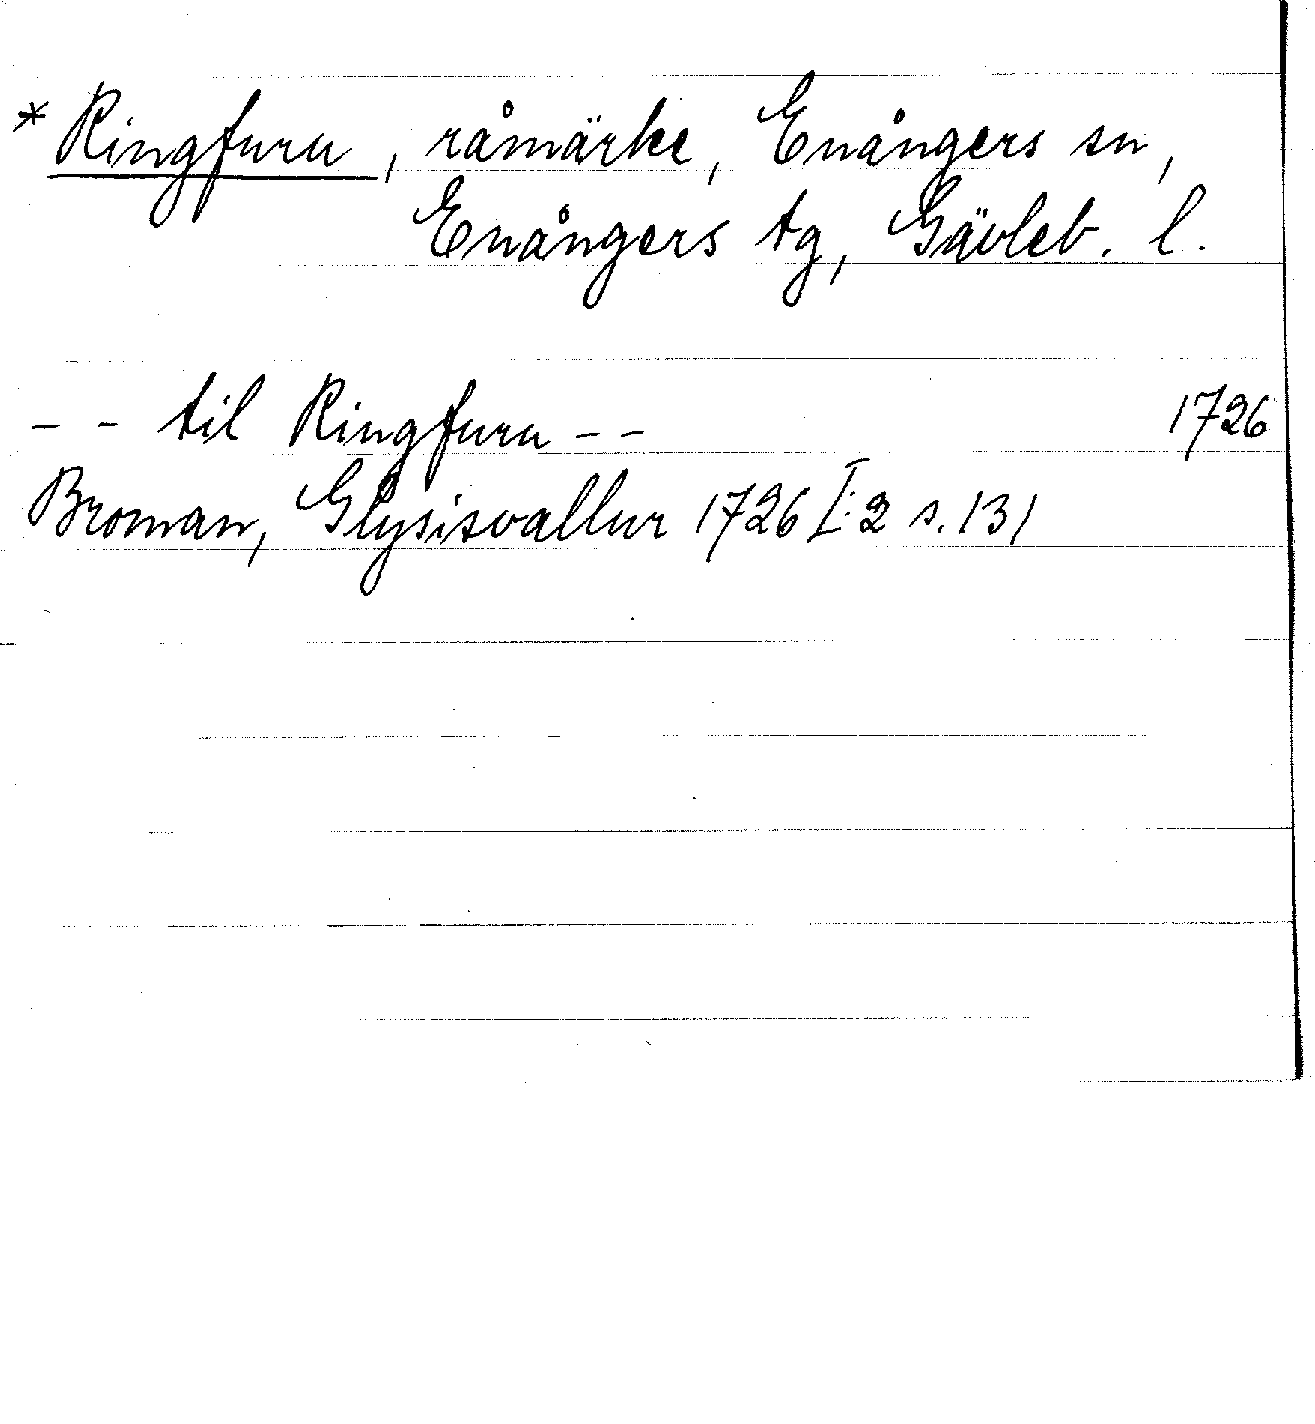 * Ringfuru, råmärke, Enångers sn,
Enångers tg, Gävleb. l.
- - til Ringfuru - - 1726
Broman, Glysisvallur 1726 I:2 s. 131